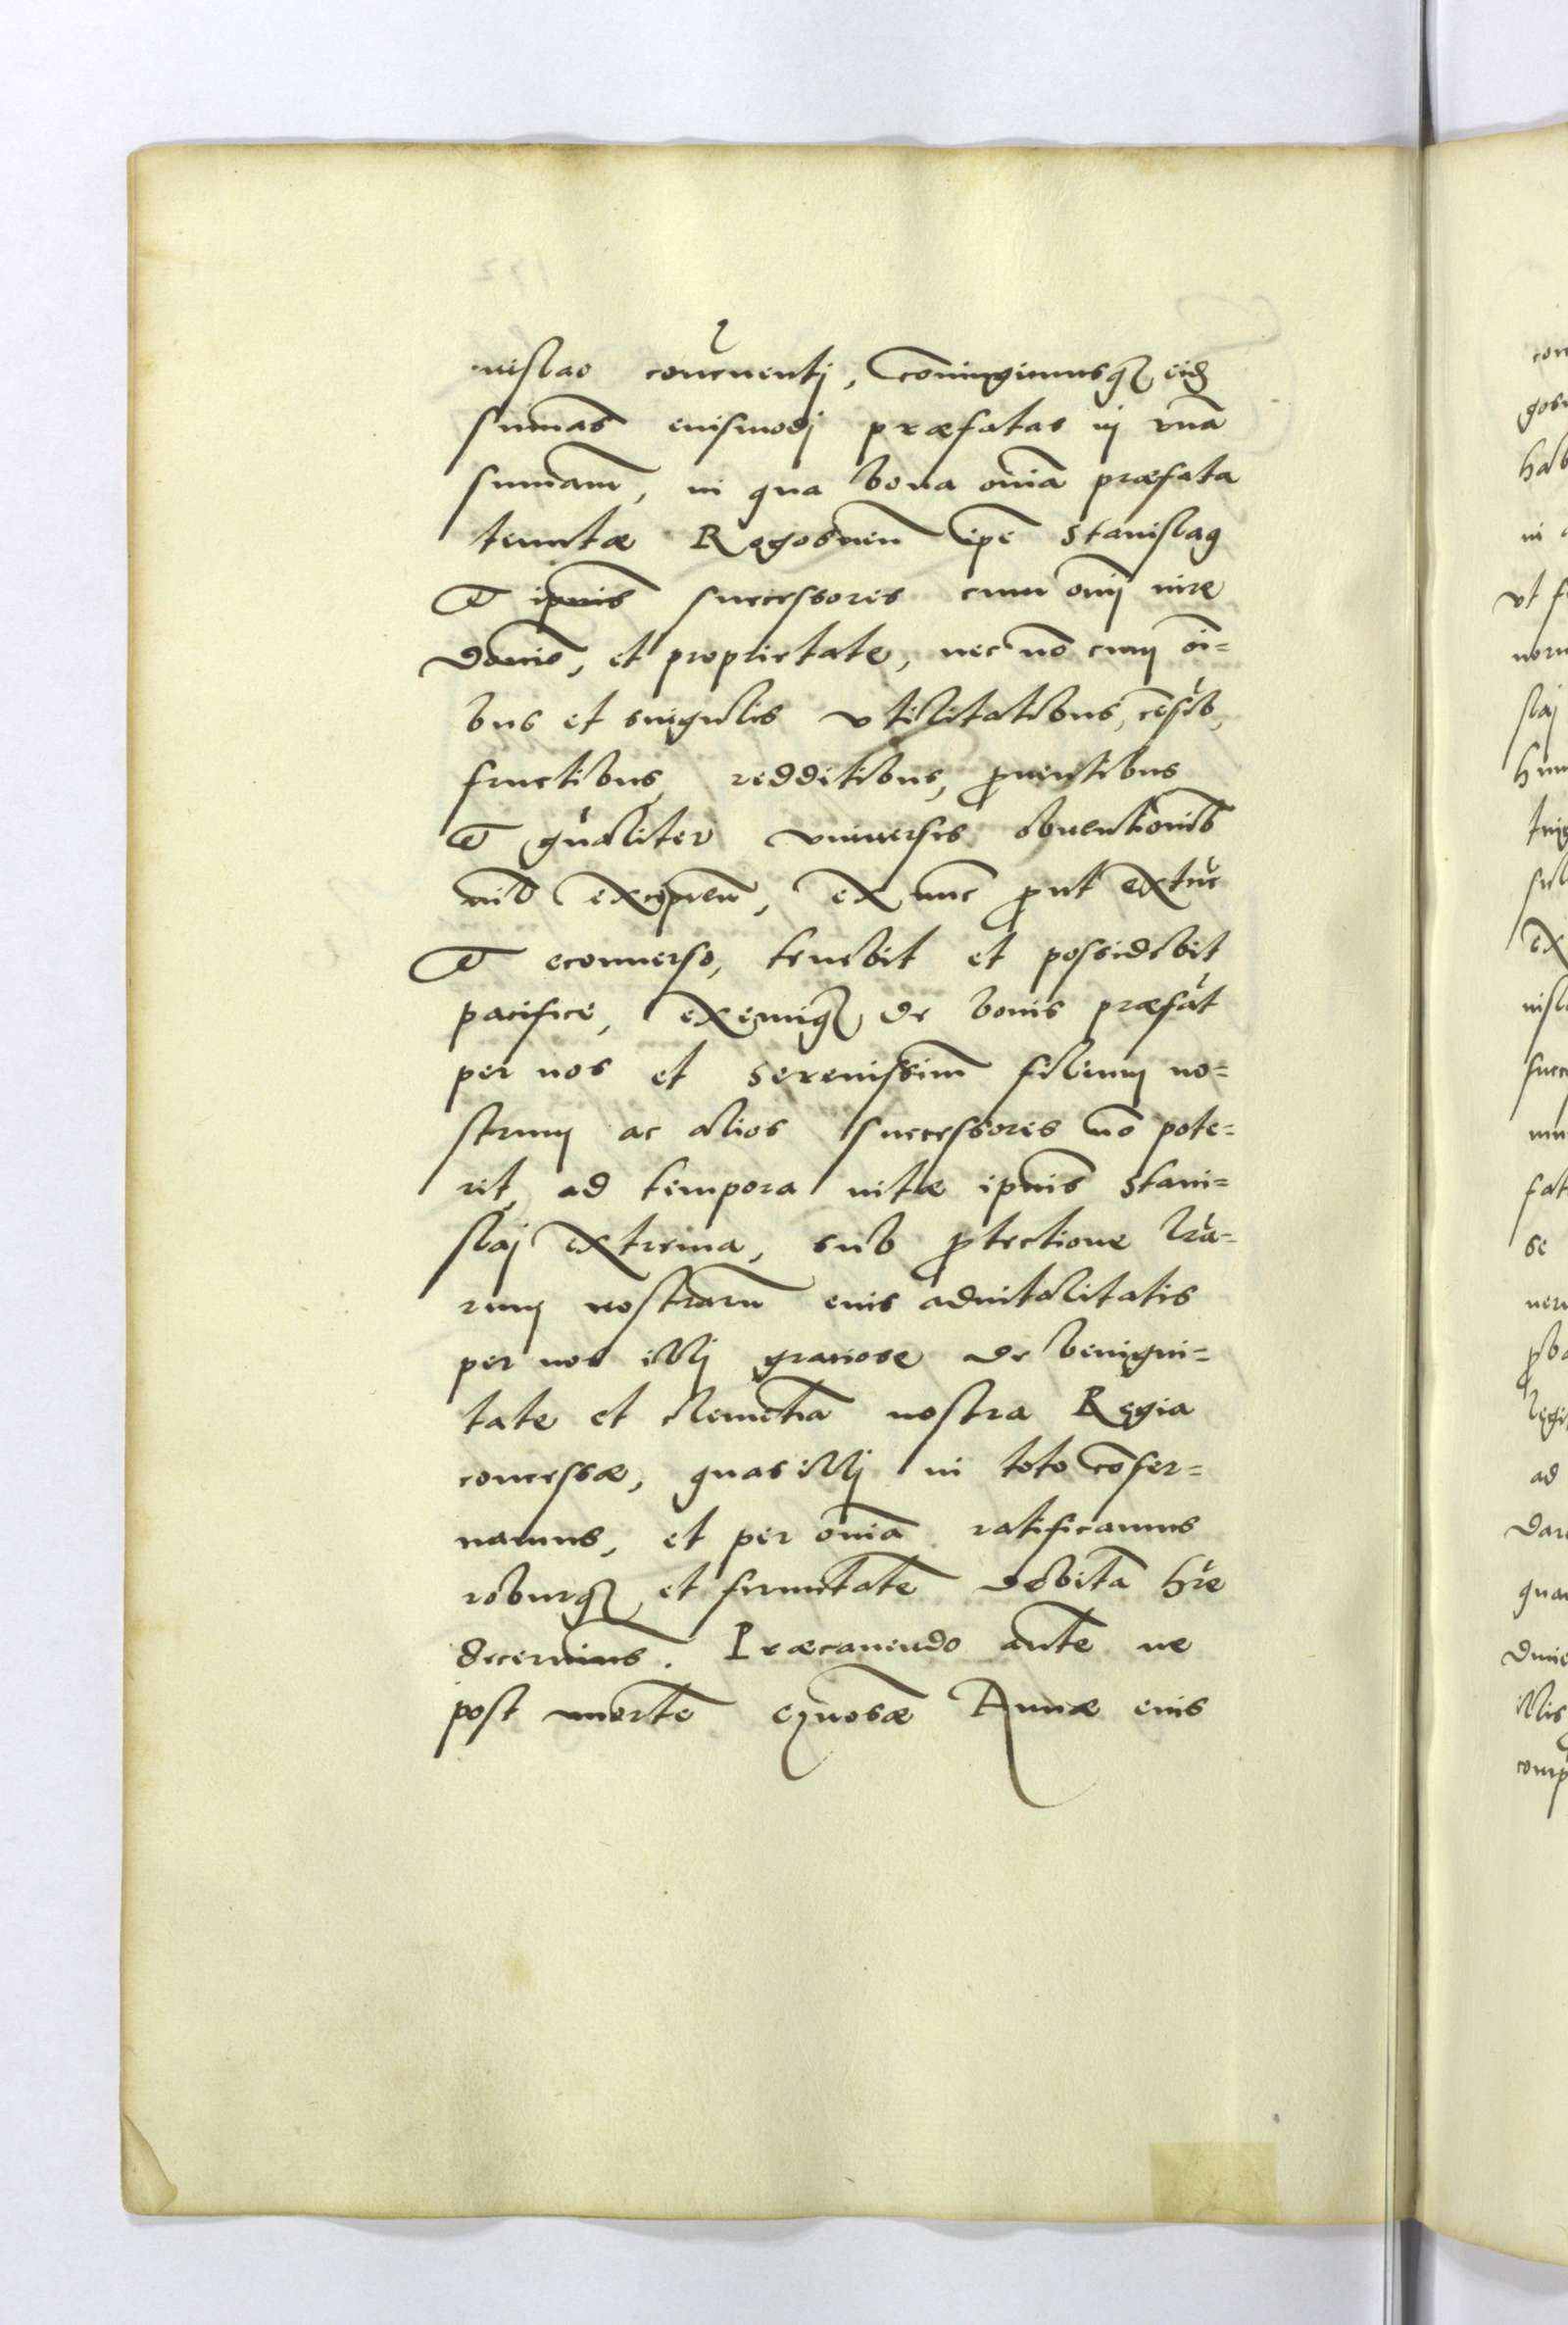 nislao concernentj, Coniungimusq3 eid3
sum̄as eiusmodj præfatas in vnā
summam, in qua bona om̄ia præfata
tenutæ Rogosnen̄ ip̄e Stanislaq
Et ipsius successores cum omj iure
Domīo, et proprietate, nec nō cum oī=
bus et singulis vtilitatibus, cēsib,
fructibus, redditibus, ꝓuentibus
Et gn̄aliter vniuersis obuentionib
nil excipien̄, ex nūc ꝓut extūc
Et econuerso, tenebit et possidebit
pacifice, eximiq3 de bonis præfat
per nos et Serenissim̄ filium no=
strum ac alios successores nō pote=
rit, ad tempora vitæ ipsius Stani=
slaj extrema, sub ꝓtectione lr̄a=
rum nostrarū eius aduitalitatis
per nos illj gratiose de benigni=
tate et clemētia nostra Regia
concessæ, quas illj in toto cōser=
uamus, et per om̄ia ratificamus
roburq3 et firmitatē debitā hr̄e
decernim̄s. Præcauendo autē ne
post mortē gn̄osæ Annæ eius